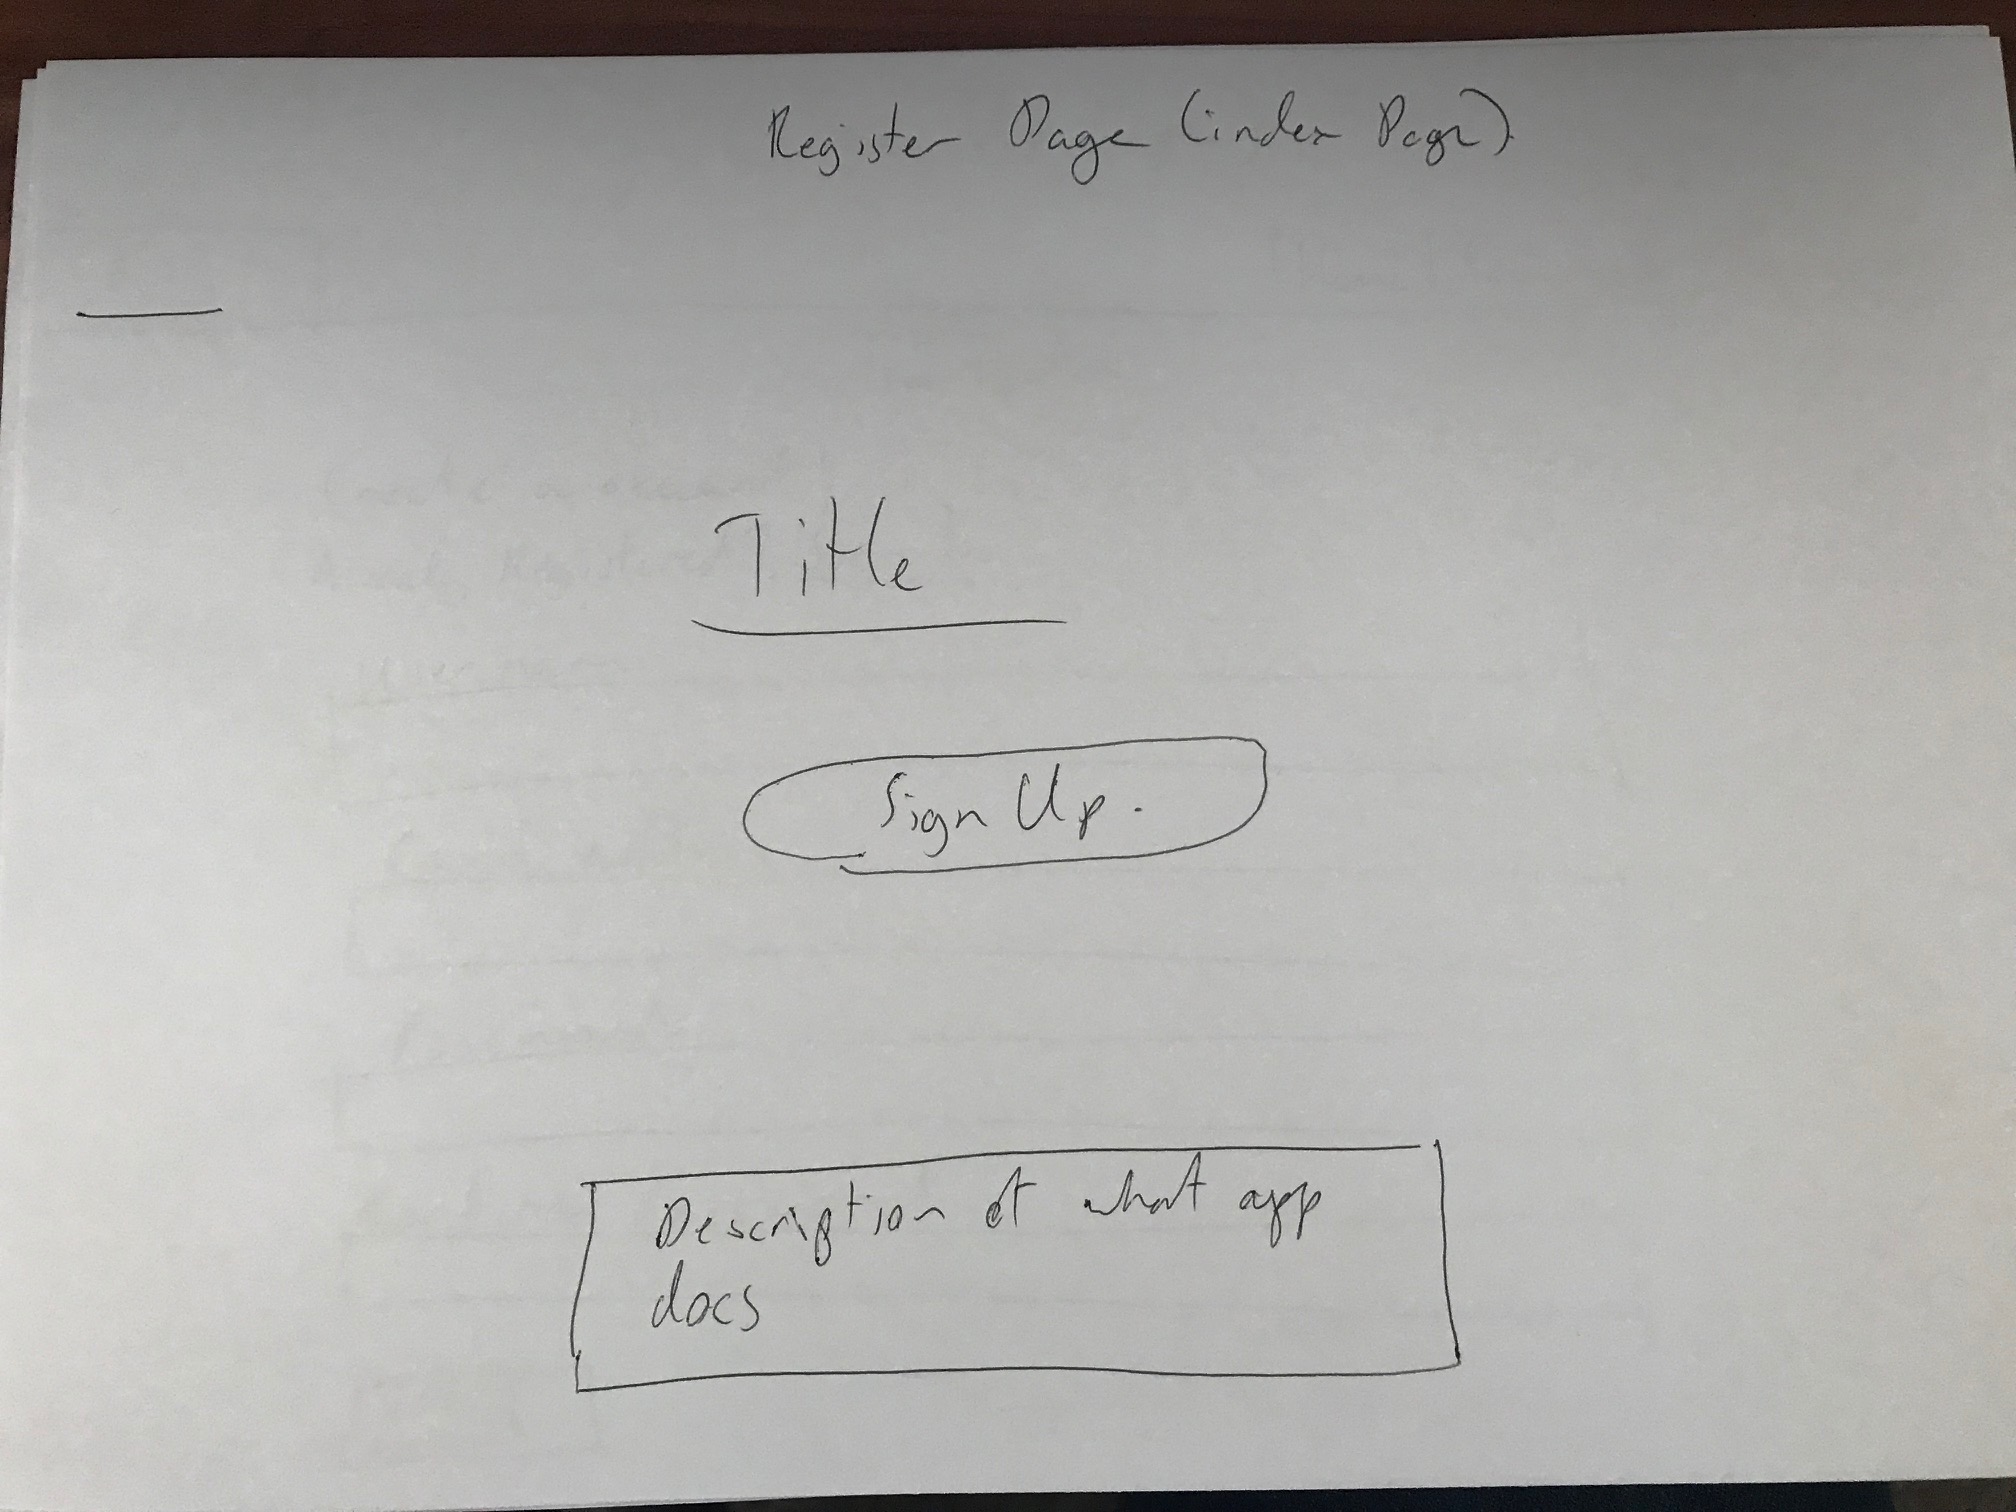 Register Page (index Page)
Title
Sign Up.
Description of what app
does